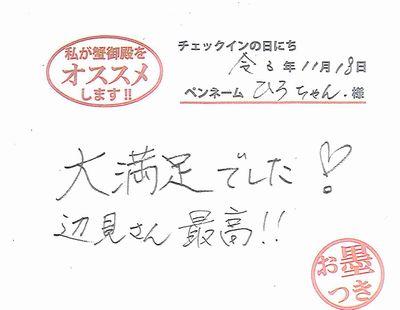 私が蟹御殿を
オススメ
します!!
チェックインの日にち
令3年11月18日
ペンネーム ひろちゃん.様
大満足でした!
辺見さん最高!!
お墨
つき